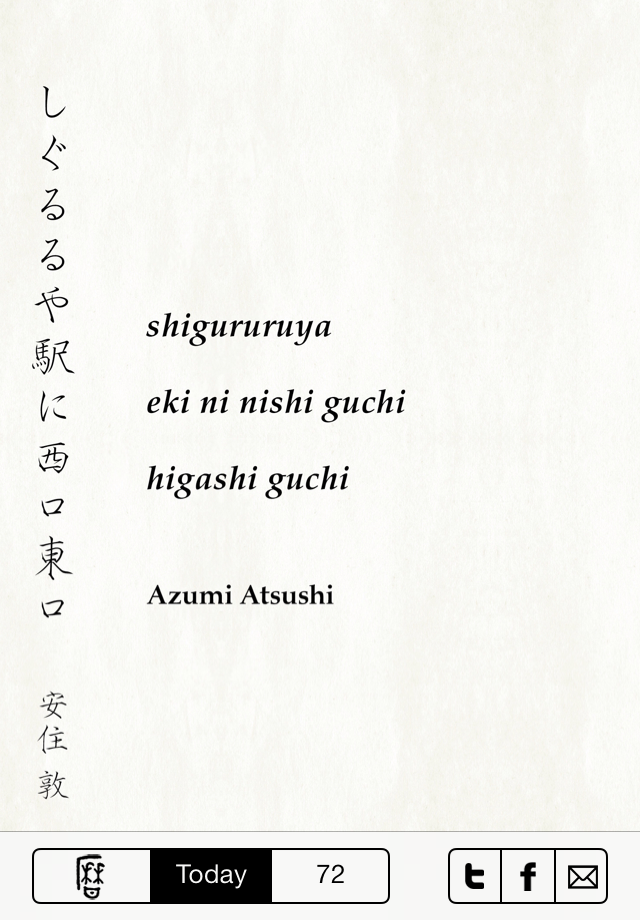 しぐるるや駅に西口東口
安住敦
shigururuya
eki ni nishi guchi
higashi guchi
Azumi Atsushi
暦
Today
72